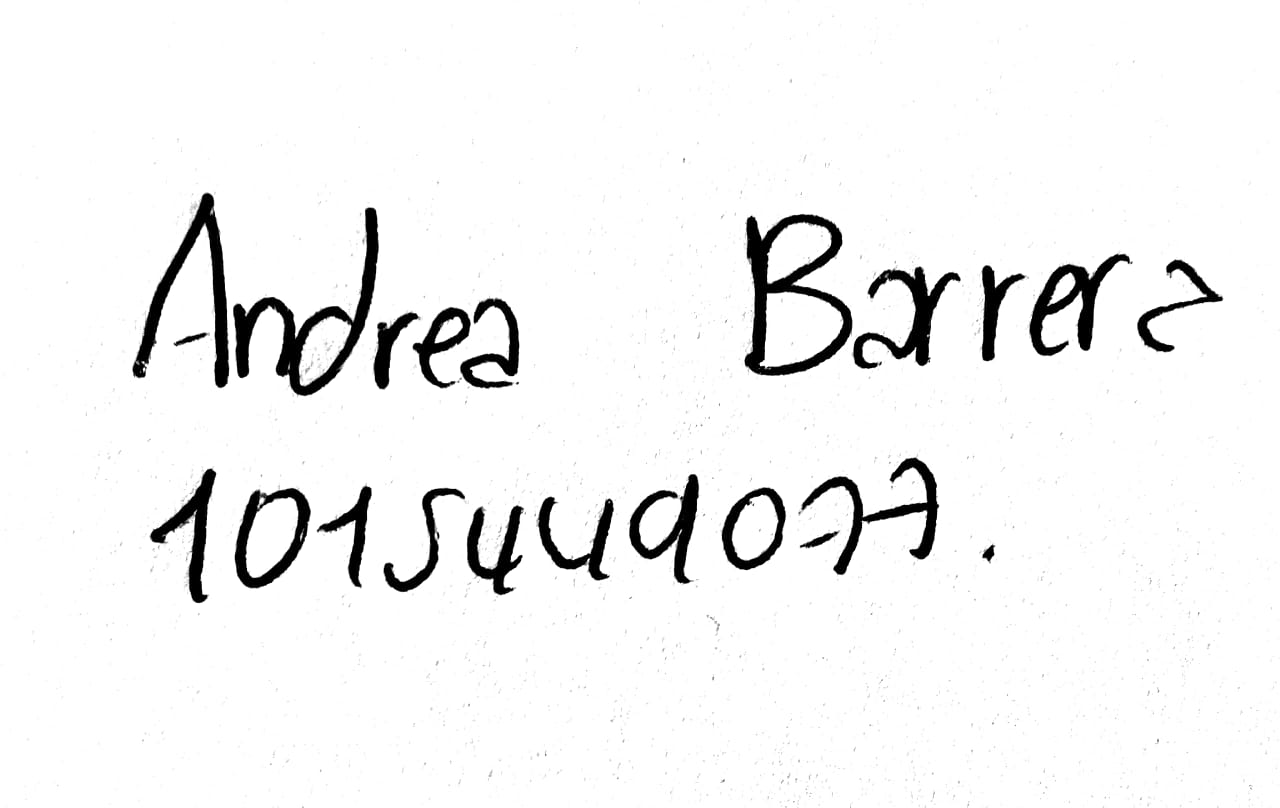 Andrea Barrera
1015449077.